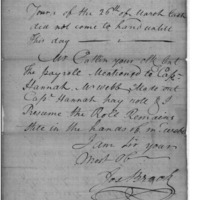 Yours of the 26th of March
did not come to hand untill
this day
Mr Patten your
the payrole Mentioned to Capt
Hannah. Mr Webb Made out
Capt Hannah pay role & I
Presume the Role Remains
Still in the hands of
I am Sir your
Most Ob